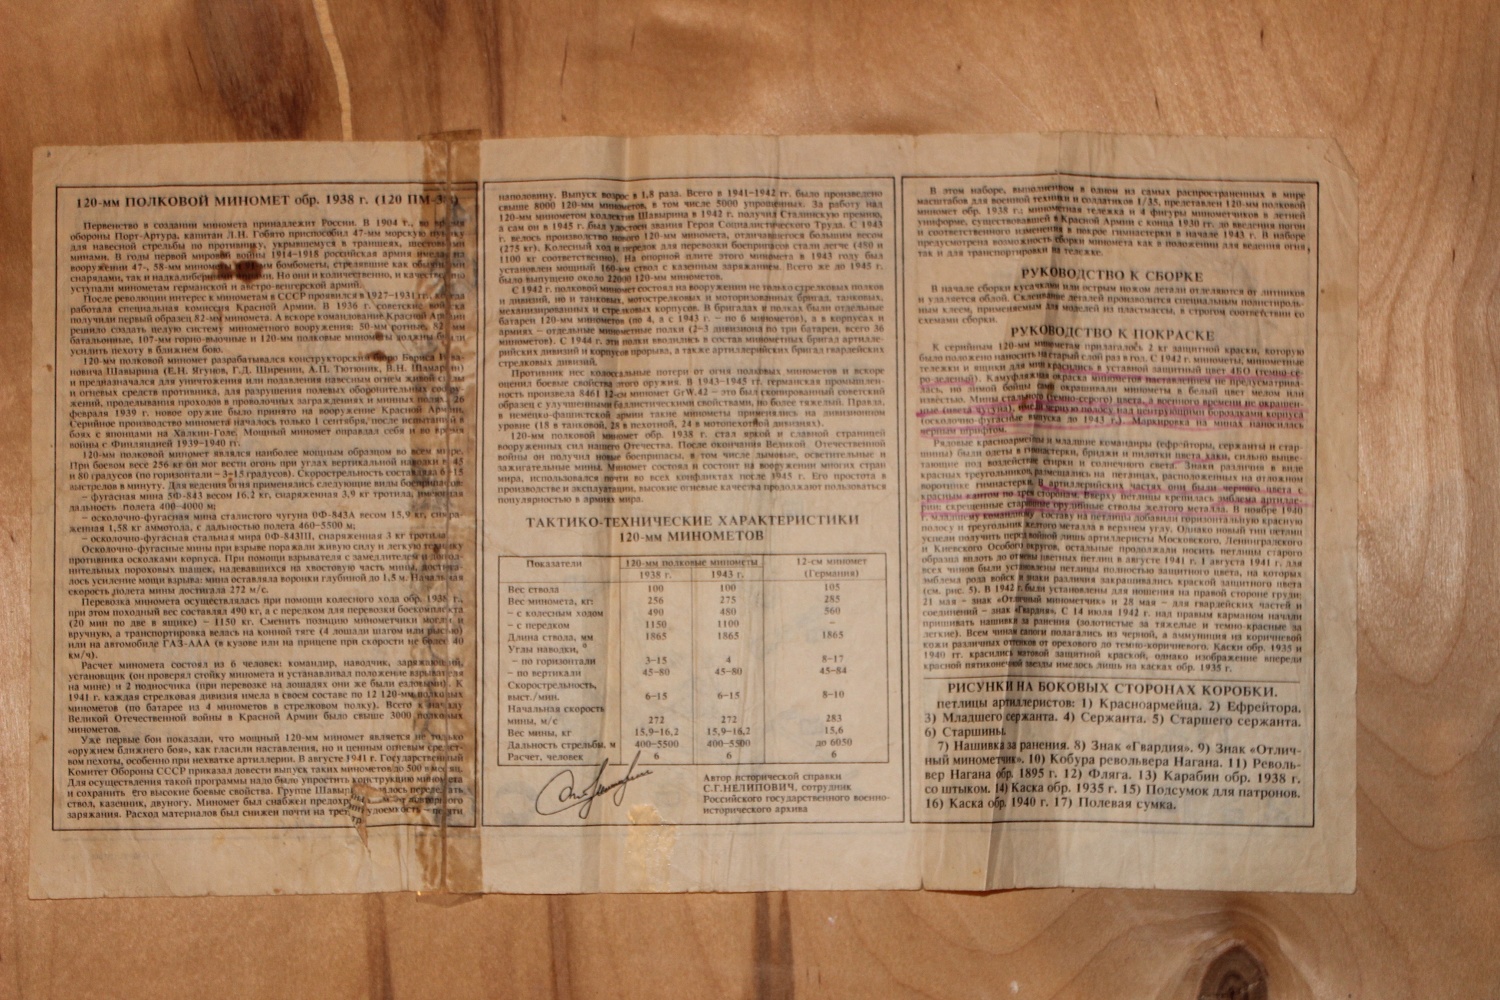 120-мм ПОЛКОВОЙ МИНОМЕТ обр. 1938 г. (120 ПМ-
Первенство в создании миномета принадлежит России. В 1904 г., во
обороны Порт-Артура, капитан Л.Н. Гобято приспособил 47-мм морскую
для навесной стрельбы по противнику, укрывшемуся в траншеях,
минами. В годы первой мировой войны 1914-1918 российская армия
вооружении 47-, 58-мм бомбометы, стрелявшие как
снарядами, так и Но они и количественно, и
уступали минометам германской и австро-венгерской армий.
После революции интерес к минометам в СССР проявился в 1927-1931 гг.,
работала специальная комиссия Красной Армии. В 1936 г. советские
получили первый образец 82-мм миномета. А вскоре командование Красной
решило создать целую систему минометного вооружения: 50-мм ротные, 82
батальонные, 107-мм горно-вьючные и 120-мм полковые минометы должны были
усилить пехоту в ближнем бою.
120-мм полковой миномет разрабатывался конструкторским Бориса
вича Шавырина (Е.Н. Ягунов, Г.Д. Ширенин, А.П. Тютюник, В.Н.
и предназначался для уничтожения или подавления навесным огнем живой
и огневых средств противника, для разрушения полевых оборонительных
жений, проделывания проходов в проволочных заграждениях и минных полях. 26
февраля 1939 г. новое оружие было принято на вооружение Красной Армии.
Серийное производство миномета началось только 1 сентября, после испытаний в
боях с японцами на Халкин-Голе. Мощный миномет оправдал себя и во время
войны с Финляндией 1939-1940 гг.
120-мм полковой миномет являлся наиболее мощным образцом во всем мире.
При боевом весе 256 кг он мог вести огонь при углах вертикальной наводки в 45
и 80 градусов (по горизонтали - 3-15 градусов). Скорострельность составляла 6-15
выстрелов в минуту. Для ведения огня применялись следующие виды боеприпасов:
- фугасная мина 3Ф-843 весом 16,2 кг, снаряженная 3,9 кг тротила, имеющая
дальность полета 400-4000 м;
- осколочно-фугасная мина сталистого чугуна 0Ф-843А весом 15,9 кг,
женная 1,58 кг аммотола, с дальностью полета 460-5500 м;
- осколочно-фугасная стальная мира 0Ф-843Ш, снаряженная 3 кг тротила.
Осколочно-фугасные мины при взрыве поражали живую силу и легкую технику
противника осколками корпуса. При помощи взрывателя с замедлителем и
нительных пороховых шашек, надевавшихся на хвостовую часть мины,
лось усиление мощи взрыва: мина оставляла воронки глубиной до 1,5 м. Начальная
скорость полета мины достигала 272 м/с.
Перевозка миномета осуществлялась при помощи колесного хода обр. 1938 г.,
при этом походный вес составлял 490 кг, а с передком для перевозки боекомплекта
(20 мин по две в ящике) - 1150 кг. Сменить позицию минометчики могли и
вручную, а транспортировка велась на конной тяге (4 лошади шагом или рысью)
или на автомобиле ГАЗ-ААА (в кузове или на прицепе при скорости не более 40
км/ч).
Расчет миномета состоял из 6 человек: командир, наводчик, заряжающий,
установщик (он проверял стойку миномета и устанавливал положение взрывателя
на мине) и 2 подносчика (при перевозке на лошадях они же были ездовыми). К
1941 г. каждая стрелковая дивизия имела в своем составе по 12 120-мм полковых
минометов (по батарее из 4 минометов в стрелковом полку). Всего к началу
Великой Отечественной войны в Красной Армии было свыше 3000 полковых
минометов.
Уже первые бои показали, что мощный 120-мм миномет является не только
«оружием ближнего боя», как гласили наставления, но и ценным огневым средст-
вом пехоты, особенно при нехватке артиллерии. В августе 1941 г. Государственный
Комитет Обороны СССР приказал довести выпуск таких минометов до 500 в месяц.
Для осуществления такой программы надо было упростить конструкцию миномета
и сохранить его высокие боевые свойства. Группе
ствол, казенник, двуногу. Миномет был снабжен
заряжания. Расход материалов был снижен почти на
наполовину. Выпуск возрос в 1,8 раза. Всего в 1941-1942 гг. было произведено
свыше 8000 120-мм минометов, в том числе 5000 упрощенных. За работу над
120-мм минометом коллектив Шавырина в 1942 г. получил Сталинскую премию,
а сам он в 1945 г. был удостоен звания Героя Социалистического Труда. С 1943
г. велось производство нового 120-мм миномета, отличавшегося большим весом
(275 кг). Колесный ход и передок для перевозки боеприпасов стали легче (480 и
1100 кг соответственно). На опорной плите этого миномета в 1943 году был
установлен мощный 160-мм ствол с казенным заряжанием. Всего же до 1945 г.
было выпущено около 22000 120-мм минометов.
С 1942 г. полковой миномет состоял на вооружении не только стрелковых полков
и дивизий, но и танковых, мотострелковых и моторизованных бригад, танковых,
механизированных и стрелковых корпусов. В бригадах и полках были отдельные
батареи 120-мм минометов (по 4, а с 1943 г. - по 6 минометов), а в корпусах и
армиях - отдельные минометные полки (2-3 дивизиона по три батареи, всего 36
минометов). С 1944 г. эти полки вводились в состав минометных бригад артилле-
рийских дивизий и корпусов прорыва, а также артиллерийских бригад гвардейских
стрелковых дивизий.
Противник нес колоссальные потери от огня полковых минометов и вскоре
оценил боевые свойства этого оружия. В 1943-1945 гг. германская промышлен-
ность произвела 8461 12-см миномет GrW.42 - это был скопированный советский
образец с улучшенными баллистическими свойствами, но более тяжелый. Правда,
в немецко-фашистской армии такие минометы применялись на дивизионном
уровне (18 в танковой, 28 в пехотной, 24 в мотопехотной дивизиях).
120-мм полковой миномет обр. 1938 г. стал яркой и славной страницей
вооруженных сил нашего Отечества. После окончания Великой Отечественной
войны он получил новые боеприпасы, в том числе дымовые, осветительные и
зажигательные мины. Миномет состоял и состоит на вооружении многих стран
мира, использовался почти во всех конфликтах после 1945 г. Его простота в
производстве и эксплуатации, высокие огневые качества продолжают пользоваться
популярностью в армиях мира.
ТАКТИКО-ТЕХНИЧЕСКИЕ ХАРАКТЕРИСТИКИ
120-мм МИНОМЕТОВ
Показатели 120-мм полковые минометы 12-см миномет
1938 г. 1943 г. (Германия)
Вес ствола 100 100 105
Вес миномета, кг: 256 275 285
- с колесным ходом 490 480 560
- с передком 1150 1100 -
Длина ствола, мм 1865 1865 1865
Углы наводки, °
- по горизонтали 3-15 4 8-17
- по вертикали 45-80 45-80 45-84
Скорострельность,
выст./мин. 6-15 6-15 8-10
Начальная скорость
мины, м/с 272 272 283
Вес мины, кг 15,9-16,2 15,9-16,2 15,6
Дальность стрельбы, м 400-5500 400-5500 до 6050
Расчет, человек 6 6 6
Автор исторической справки
С.Г.НЕЛИПОВИЧ, сотрудник
Российского государственного военно-
исторического архива
В этом наборе, выполненном в одном из самых распространенных в мире
масштабов для военной техники и солдатиков 1/35, представлен 120-мм полковой
миномет обр. 1938 г.; минометная тележка и 4 фигуры минометчиков в летней
униформе, существовавшей в Красной Армии с конца 1930 гг. до введения погон
и соответственного изменения в покрое гимнастерки в начале 1943 г. В наборе
предусмотрена возможность сборки миномета как в положении для ведения огня,
так и для транспортировки на тележке.
РУКОВОДСТВО К СБОРКЕ
В начале сборки кусачками или острым ножом детали отделяются от литников
и удаляется облой. Склеивание деталей производится специальным полистироль-
ным клеем, применяемым для моделей из пластмассы, в строгом соответствии со
схемами сборки.
РУКОВОДСТВО К ПОКРАСКЕ
К серийным 120-мм минометам прилагалось 2 кг защитной краски, которую
было положено наносить на старый слой раз в год. С 1942 г. минометы, минометные
тележки и ящики для мин красились в уставной защитный цвет 4БО (темно-се-
ро-зеленый). Камуфляжная окраска минометов наставлением не предусматрива-
лась, но зимой бойцы сами окрашивали минометы в белый цвет мелом или
известью. Мины стального (темно-серого) цвета, а военного времени не окрашен-
ные (цвета чугуна), черную полосу над центрующими бороздками корпуса
(осколочно-фугасные выпуска до 1943 г.). Маркировка на минах наносилась
черным шрифтом.
Рядовые красноармейцы и младшие командиры (ефрейторы, сержанты и стар-
шины) были одеты в гимнастерки, бриджи и пилотки цвета хаки, сильно выцве-
тающие под воздействием стирки и солнечного света. Знаки различия в виде
красных треугольников размещались на петлицах, расположенных на отложном
воротнике гимнастерки. В артиллерийских частях они были черного цвета с
красным кантом по трем сторонам. Вверху петлицы крепилась эмблема артилле-
рии: скрещенные старинные орудийные стволы желтого металла. В ноябре 1940
г. младшему командному составу на петлицы добавили горизонтальную красную
полосу и треугольник желтого металла в верхнем углу. Однако новый тип петлиц
успели получить перед войной лишь артиллеристы Московского, Ленинградского
и Киевского Особого округов, остальные продолжали носить петлицы старого
образца вплоть до отмены цветных петлиц в августе 1941 г. 1 августа 1941 г. для
всех чинов были установлены петлицы полностью защитного цвета, на которых
эмблема рода войск и знаки различия закрашивались краской защитного цвета
(см. рис. 5). В 1942 г. были установлены для ношения на правой стороне груди:
21 мая - знак «Отличный минометчик» и 28 мая - для гвардейских частей и
соединений - знак «Гвардия». С 14 июля 1942 г. над правым карманом начали
пришивать нашивки за ранения (золотистые за тяжелые и темно-красные за
легкие). Всем чинам сапоги полагались из черной, а аммуниция из коричневой
кожи различных оттенков от орехового до темно-коричневого. Каски обр. 1935 и
1940 гг. красились матовой защитной краской, однако изображение впереди
красной пятиконечной звезды имелось лишь на касках обр. 1935 г.
РИСУНКИ НА БОКОВЫХ СТОРОНАХ КОРОБКИ.
петлицы артиллеристов: 1) Красноармейца. 2) Ефрейтора.
3) Младшего сержанта. 4) Сержанта. 5) Старшего сержанта.
6) Старшины.
7) Нашивка за ранения. 8) Знак «Гвардия». 9) Знак «Отлич-
ный минометчик». 10) Кобура револьвера Нагана. 11) Револь-
вер Нагана обр. 1895 г. 12) Фляга. 13) Карабин обр. 1938 г.
со штыком. 14) Каска обр. 1935 г. 15) Подсумок для патронов.
16) Каска обр. 1940 г. 17) Полевая сумка.